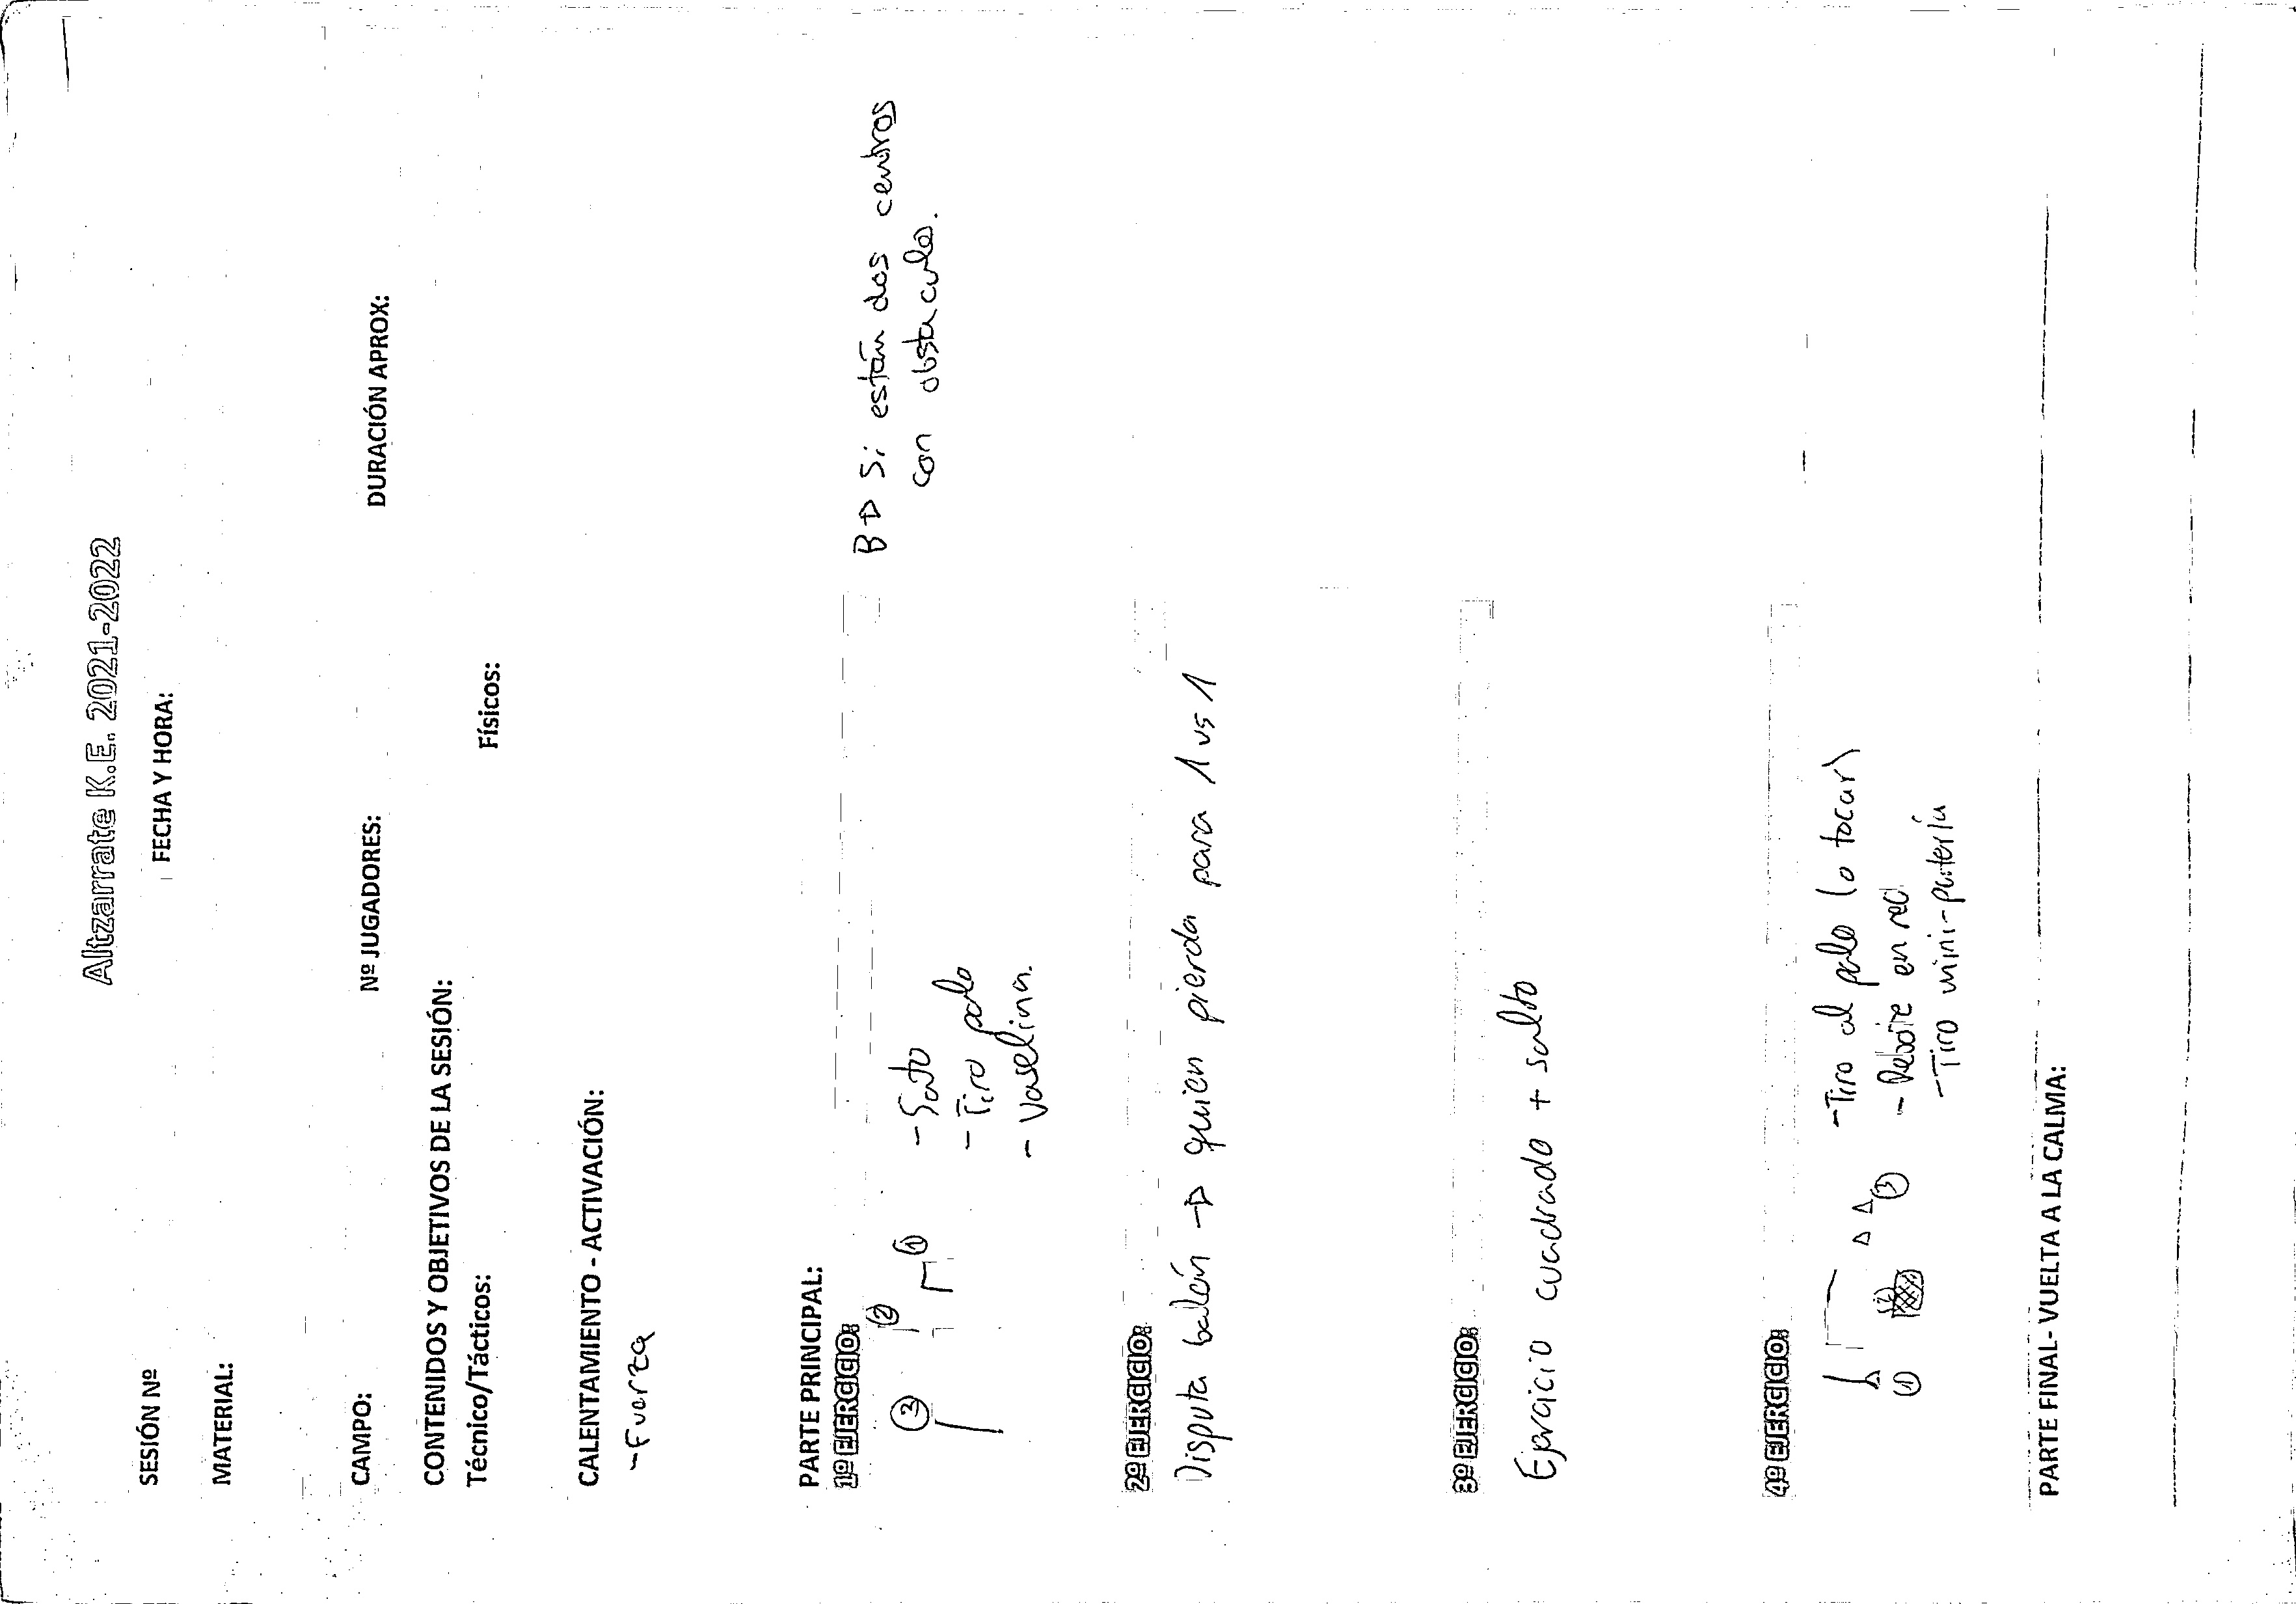 Altzarrate K.E. 2021-2022
SESIÓN Nº FECHA Y HORA:
MATERIAL:
CAMPO: Nº JUGADORES: DURACIÓN APROX:
CONTENIDOS Y OBJETIVOS DE LA SESIÓN:
Técnico/Tácticos: Físicos:
CALENTAMIENTO - ACTIVACIÓN:
- Fuerza
PARTE PRINCIPAL:
1º EJERCICIO:
B → Si están dos centros
con obstaculo.
3 2 1
- Sato
- Tiro palo
- Vaselina.
2º EJERCICIO:
Disputa balón → quien pierda para 1 vs 1
3º EJERCICIO:
Ejercicio cuadrado + salto
4º EJERCICIO:
1 2 3
- Tiro al palo (o tocar)
- Rebote en red
- Tiro mini-portería
PARTE FINAL- VUELTA A LA CALMA: